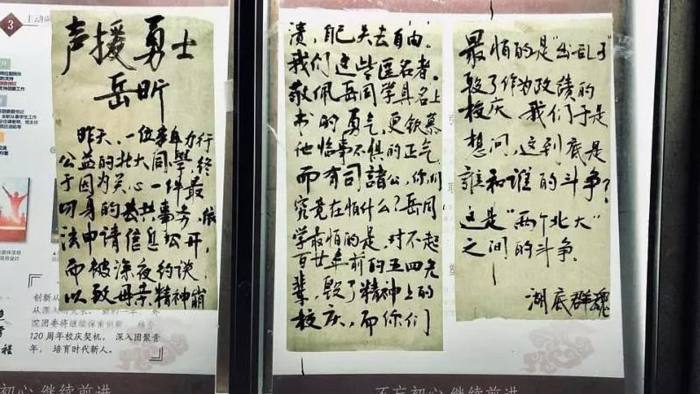 声援勇士
岳昕
昨天，一位亲身力行
公益的北大同學，终
于因为关心一件最
切身的公共事务，依
法申请信息公开，
而被深夜约谈，
以致母亲精神崩
溃，自己失去自由。
我们这些匿名者，
敬佩岳同学具名上
书的勇气，更钦慕
他临事不惧的正气。
而有司諸公，你们
究竟在怕什么？岳同
学最怕的是，对不起
百廿年前的五四先
辈，毁了精神上的
校庆，而你们
最怕的是“出乱子”
毁了作为政绩的
校庆。我们于是
想问，这到底是
誰和谁的斗争？
这是“两个北大”
之间的斗争。
湖底群魂
3
创新从
院团委将继续保
120 周年校庆契机，深入团聚青
年，培育时代新人。
初心 继续前进
不忘初心 继续前进